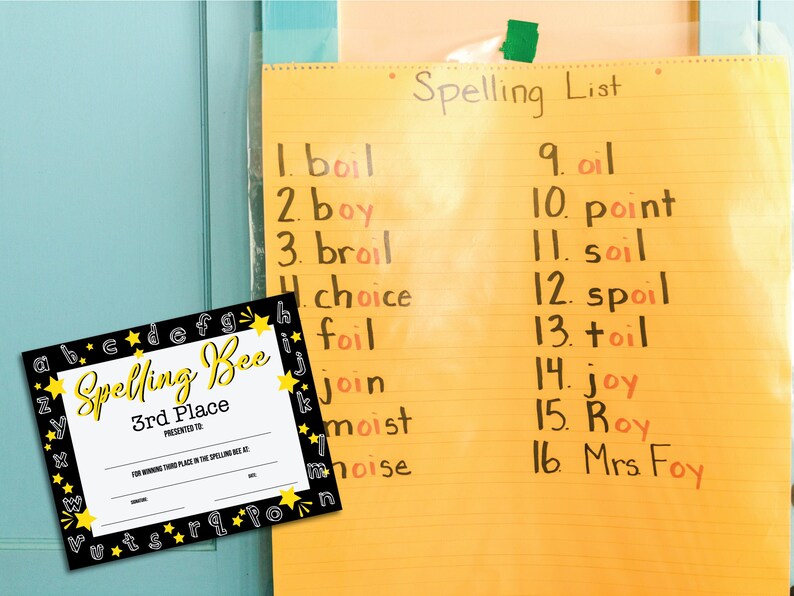 Spelling List
1. boil
2. boy
3. broil
4. choice
foil
join
moist
noise
9. oil
10. point
11. soil
12. spoil
13. toil
14. joy
15. Roy
16. Mrs. Foy
a b c d e f g h
i
j
k
l
m
n
o
p
q
r
s
t
u
v
w
x
y
z
Spelling Bee
3rd Place
PRESENTED TO:
FOR WINNING THIRD PLACE IN THE SPELLING BEE AT:
SIGNATURE: DATE: